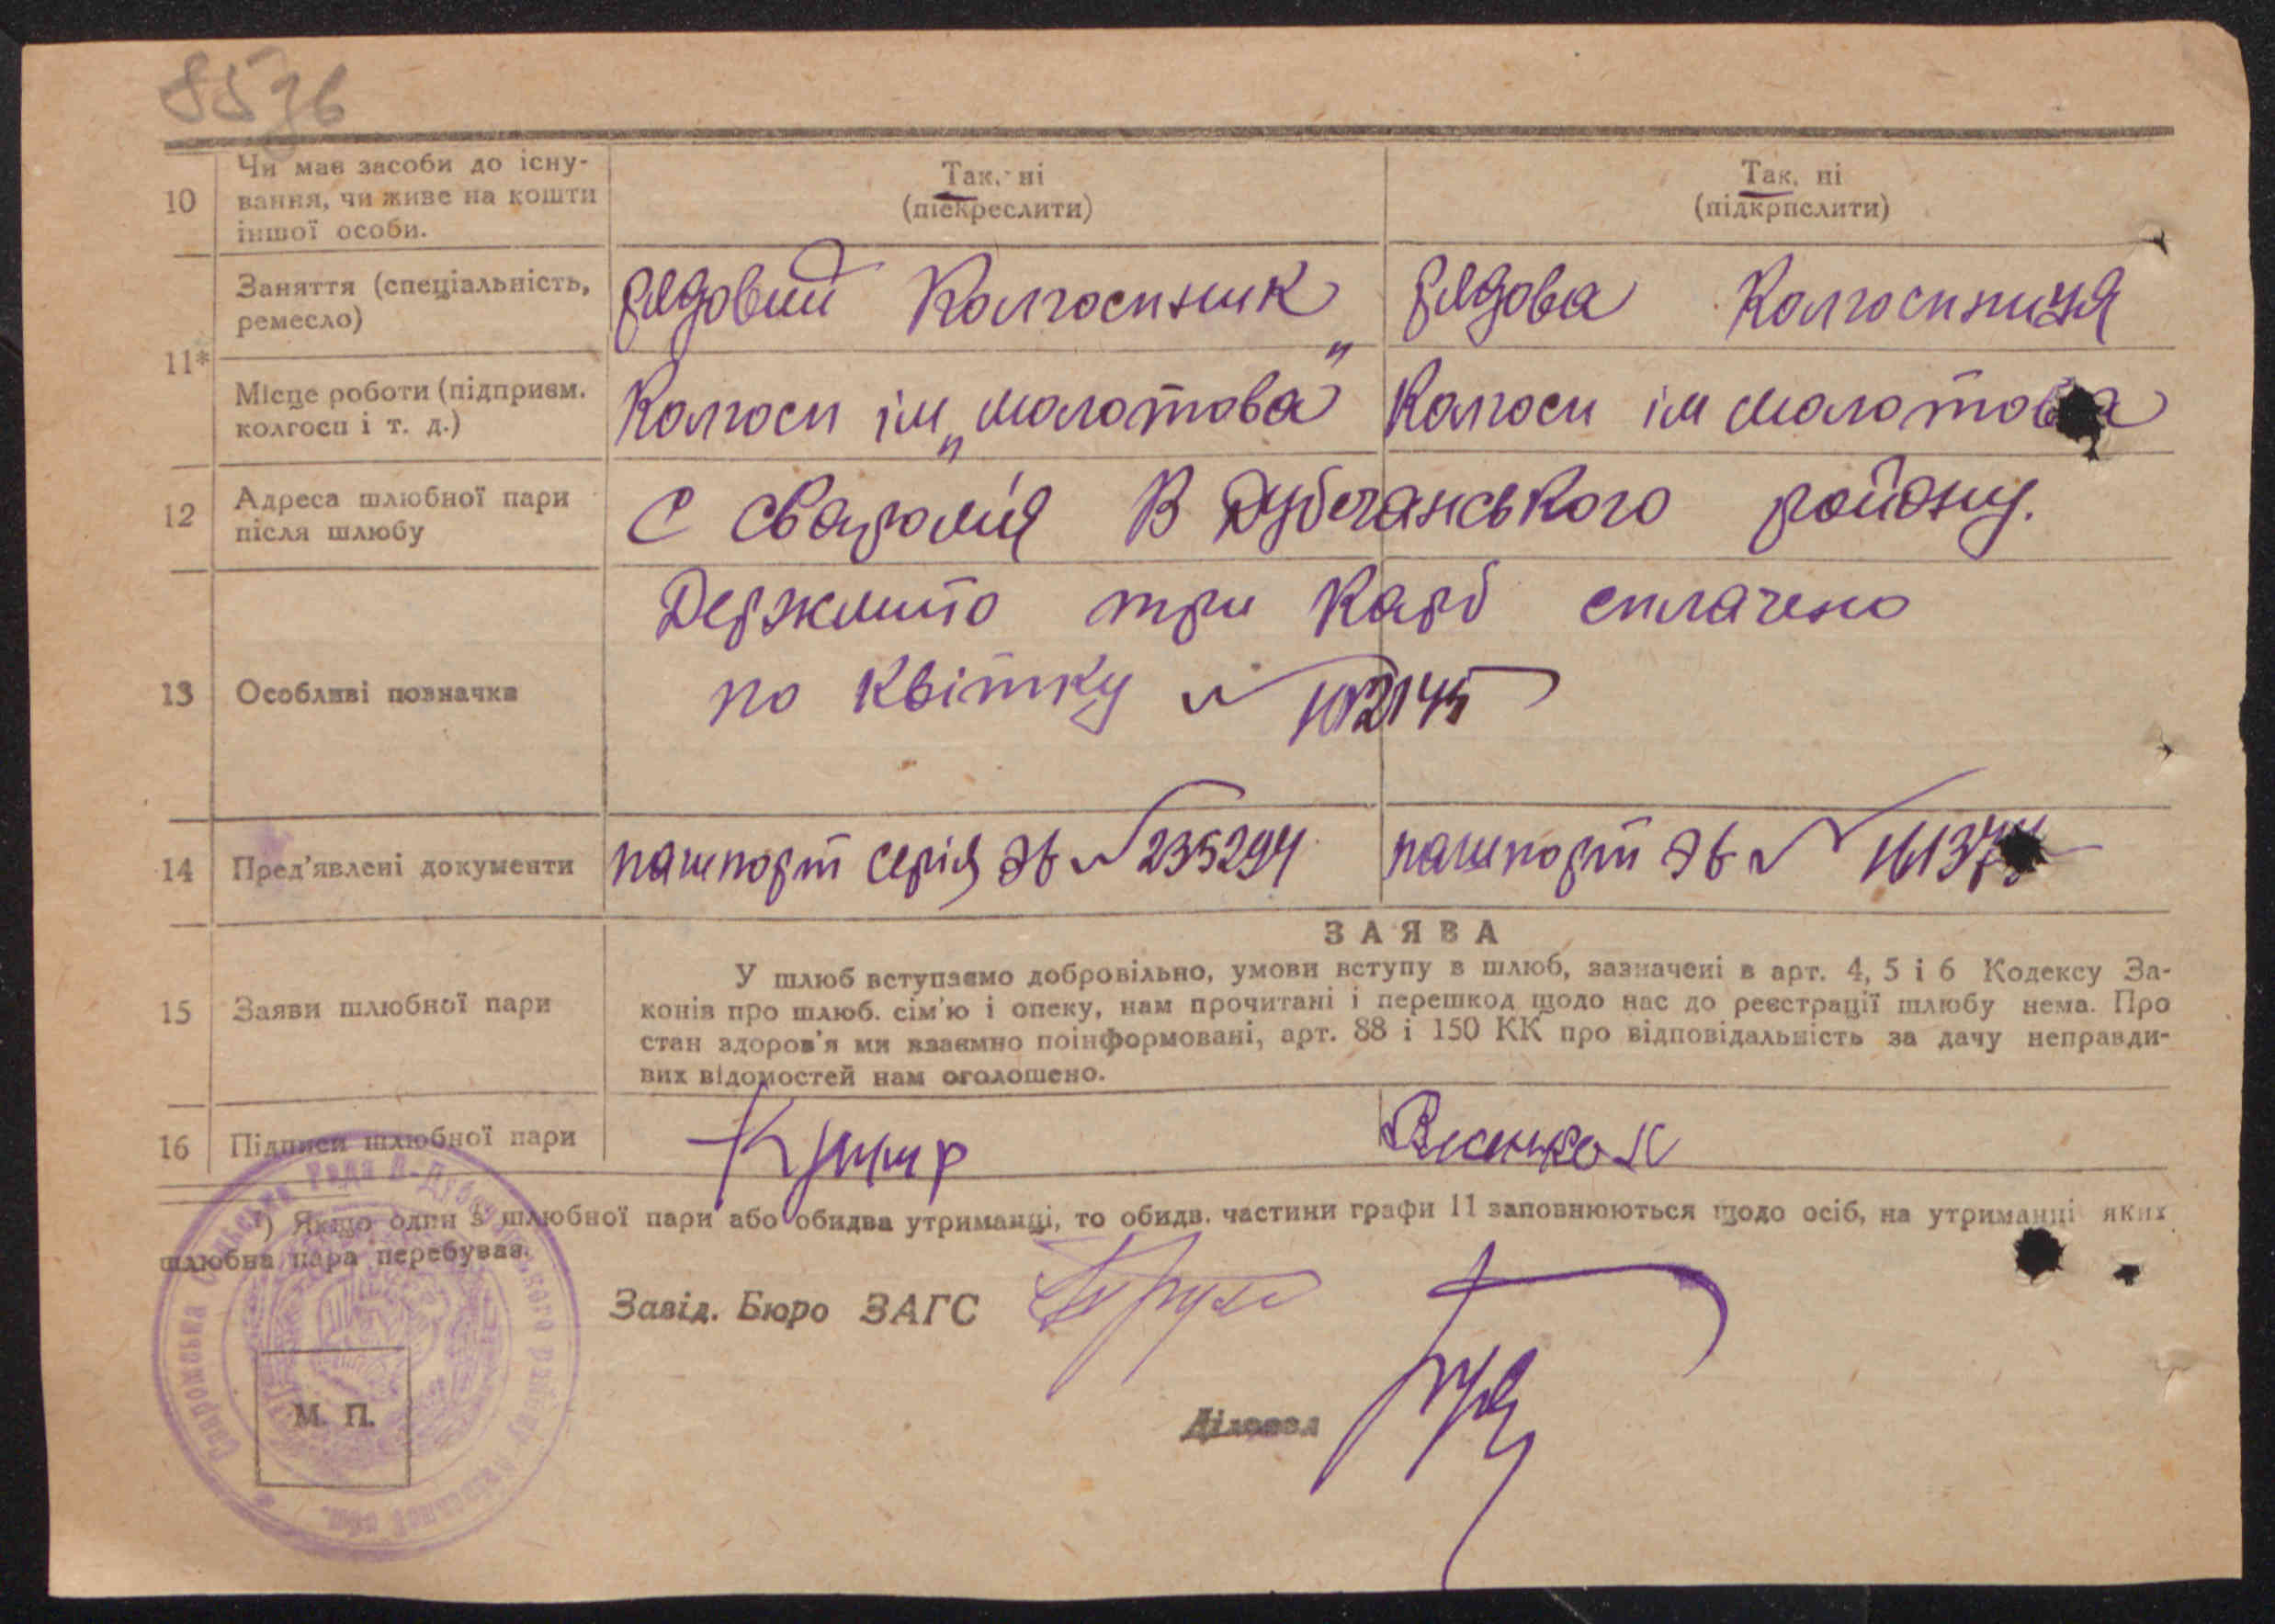 8576
10 Чи має засоби до існу-
вання, чи живе на кошти
іншої особи.
Так, ні
(підкреслити)
Так, ні
(підкрпслити)
11*
Заняття (спеціальність,
ремесло)
рядовий Колгоспник
рядова Колгоспниця
Місце роботи (підприєм.
колгосп і т. д.)
Колгосп ім „молотова"
Колгосп ім молотова
12 Адреса шлюбної пари
після шлюбу
С Сваромя В Дубечанського району.
13 Особливі позначка
Держмито три Карб сплачено
по Квітку № 102145
14 Пред'явлені документи
пашпорт серія ЭБ № 235294
пашпорт ЭБ №
15 Заяви шлюбної пари
ЗАЯВА
У шлюб вступаємо добровільно, умови вступу в шлюб, зазначені в арт. 4, 5 і 6 Кодексу За-
конів про шлюб. сім'ю і опеку, нам прочитані і перешкод щодо нас до реєстрації шлюбу нема. Про
стан здоров'я ми взаємно поінформовані, арт. 88 і 150 КК про відповідальність за дачу неправди-
вих відомостей нам оголошено.
16 Підписи шлюбної пари
*) Якщо один з шлюбної пари або обидва утриманці, то обидв. частини графи 11 заповнюються щодо осіб, на утриманці яких
шлюбна пара перебуває.
Завід. Бюро ЗАГС
Діловод
М. П.
Сваромська Сільська Рада В.-Дубечанського району Київської обл.